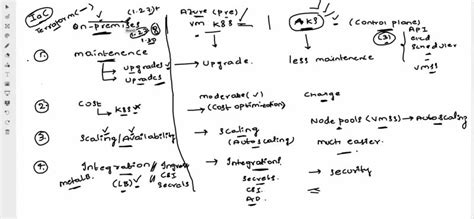 IaC
Terraform(~)
(1.2.3)+
On-premises
Azure (pre)
vm K8S
AKS
(control plane)
(3)
API
etcd
scheduler
VMSS
1. maintenence
upgrades
→ upgrade.
less maintenence
2. Cost
K8S
moderate
(Cost optimization)
change
3. Scaling/Availability
→ Scaling
(Autoscaling)
Node pools (VMSS) → Autoscaling
much easier.
4. Integration
metalB.
(LB)
Ingress
CSI
Secrets
→ Integration
Secrets.
CSI
AD.
→ security